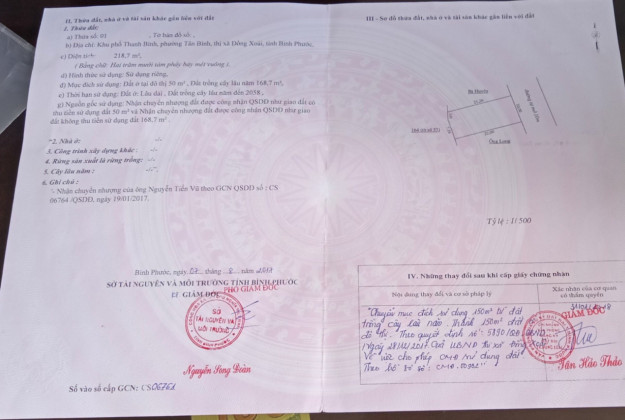 II. Thửa đất, nhà ở và tài sản khác gắn liền với đất
1. Thửa đất:
a) Thửa số: 01 , Tờ bản đồ số:
b) Địa chỉ: Khu phố Thanh Bình, phường Tân Bình, thị xã Đồng Xoài, tỉnh Bình Phước,
c) Diện tích: 218,7 m²,
( Bằng chữ: Hai trăm mười tám phẩy bảy mét vuông ).
d) Hình thức sử dụng: Sử dụng riêng,
đ) Mục đích sử dụng: Đất ở tại đô thị 50 m², Đất trồng cây lâu năm 168,7 m²,
e) Thời hạn sử dụng: Đất ở: Lâu dài , Đất trồng cây lâu năm đến 2058 ,
g) Nguồn gốc sử dụng: Nhận chuyển nhượng đất được công nhận QSDĐ như giao đất có
thu tiền sử dụng đất 50 m² và Nhận chuyển nhượng đất được công nhận QSDĐ như giao
đất không thu tiền sử dụng đất 168,7 m² .
2. Nhà ở: -/-
3. Công trình xây dựng khác: -/-
4. Rừng sản xuất là rừng trồng: -/-
5. Cây lâu năm : -/-
6. Ghi chú :
- Nhận chuyển nhượng của ông Nguyễn Tiến Vũ theo GCN QSDĐ số : CS
06764 /QSDĐ, ngày 19/01/2017.
Bình Phước, ngày tháng năm 2017
SỞ TÀI NGUYÊN VÀ MÔI TRƯỜNG TỈNH BÌNH PHƯỚC
GIÁM ĐỐC
PHÓ GIÁM ĐỐC
SỞ
TÀI NGUYÊN VÀ
MÔI TRƯỜNG
Nguyễn Song Đoàn
Số vào sổ cấp GCN: CS
III - Sơ đồ thửa đất, nhà ở và tài sản khác gắn liền với đất
Tỷ lệ : 1/ 500
IV. Những thay đổi sau khi cấp giấy chứng nhận
Nội dung thay đổi và cơ sở pháp lý
Xác nhận của cơ quan
có thẩm quyền
Chuyển mục đích sử dụng 150m² từ đất
trồng cây lâu năm thành 150m² đất
đô thị. Theo quyết định số:
Ngày của UBND thị xã Đồng Xoài
Về việc cho phép CMĐ sử dụng đất
Theo hồ sơ số:
GIÁM ĐỐC
Tân Hảo Thảo